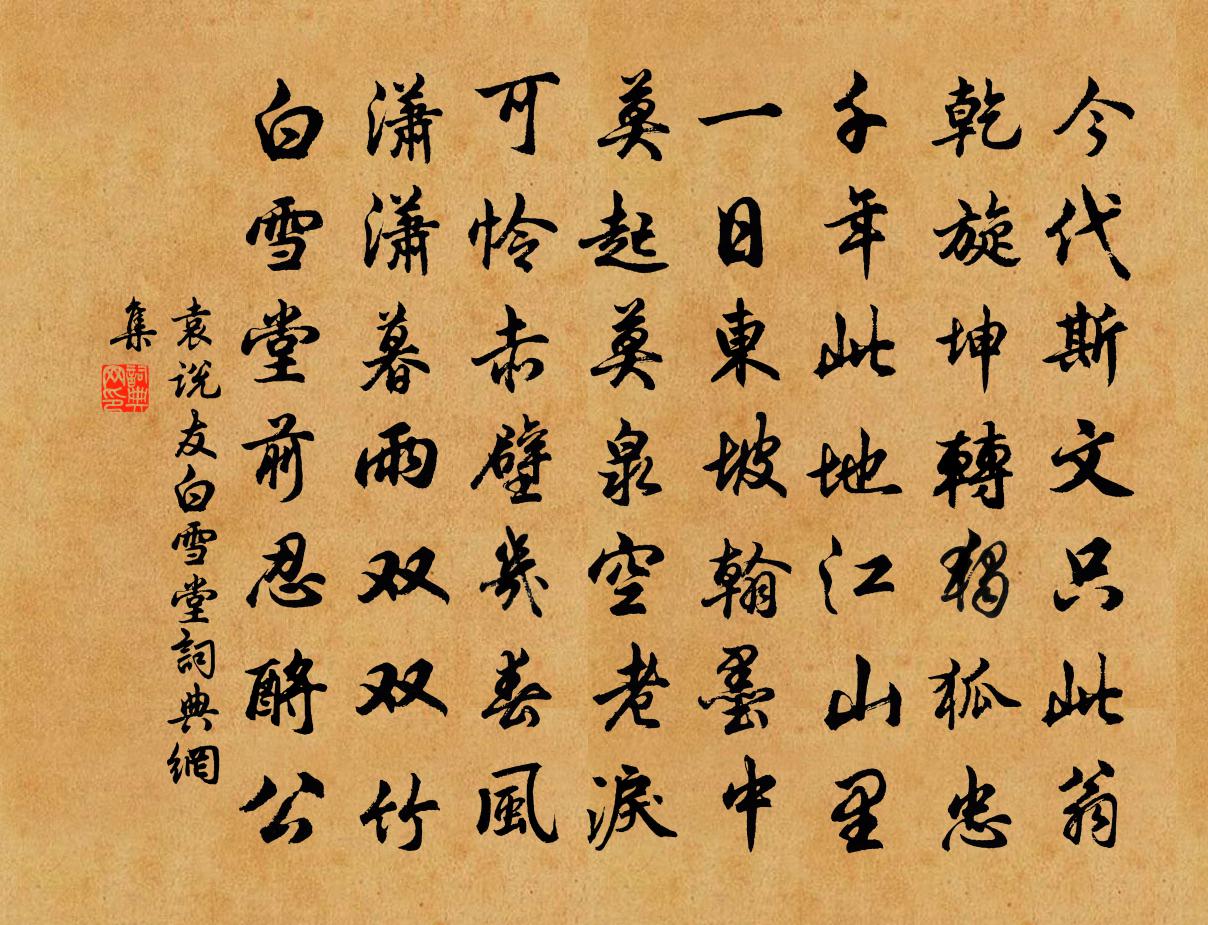 今代斯文只此翁
乾旋坤轉獨孤忠
千年此地江山里
一日東坡翰墨中
莫起莫泉空老淚
可怜赤壁幾春風
瀟瀟暮雨双双竹
白雪堂前忍酹公
袁说友白雪堂詞典網
集
詞典网印